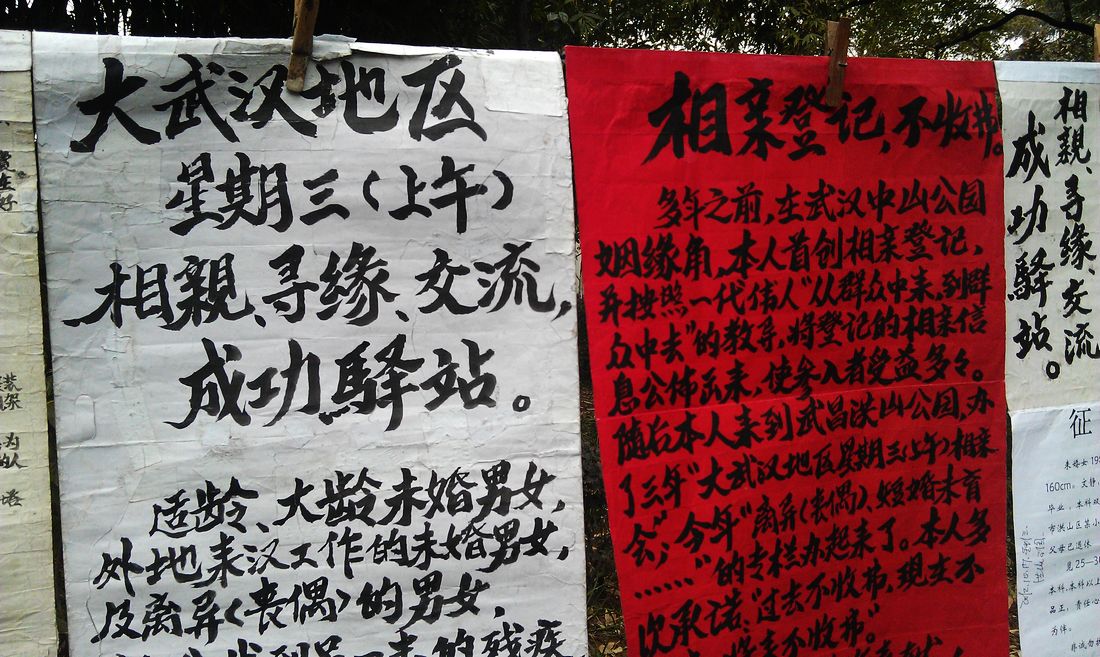 大武汉地区
星期三(上午)
相親、寻缘、交流,
成功驿站。
适龄、大龄未婚男女,
外地来汉工作的未婚男女,
及离异(丧偶)的男女,
相亲登记,不收费。
多年之前,在武汉中山公园
姻缘角,本人首创相亲登记,
并按照一代伟人“从群众中来,到群
众中去”的教导,将登记的相亲信
息公佈出来,使参入者受益多々。
随后本人来到武昌洪山公园,办
了三年“大武汉地区星期三(上午)相亲
会;”今年“离异(丧偶)、短婚未育
……”的专栏办起来了。本人多
次承诺:“过去不收费,现在不
来不收费。”
相親、寻缘、交流
成功驿站。
征
未婚女
160cm。文静
毕业,本科
市洪山区某小
父母已退休
见25—3
本科,本科以上
品正,责任心
为伴。
非诚勿扰